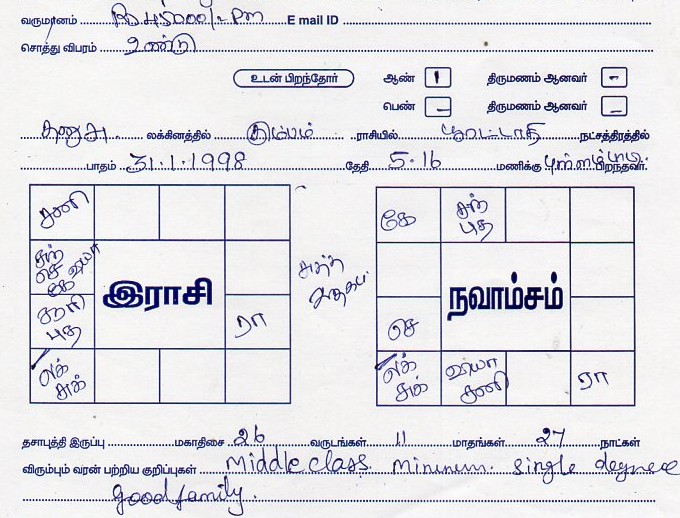 வருமானம் Rs 45000/- Pm E mail ID
சொத்து விபரம் உண்டு
உடன் பிறந்தோர் ஆண் 1 திருமணம் ஆனவர் -
பெண் - திருமணம் ஆனவர் -
தனுசு லக்கினத்தில் கும்பம் ராசியில் பூரட்டாதி நட்சத்திரத்தில்
பாதம் 31.1.1998 தேதி 5.16 மணிக்கு பிறந்தவர்.
சனி
கே சூரி புத
சந் செ வியா கே
இராசி
நவாம்சம்
சூரி புத ரா
செ
லக் சுக்
லக் சுக் வியா சனி ரா
தசாபுத்தி இருப்பு மகாதிசை 26 வருடங்கள் 11 மாதங்கள் 27 நாட்கள்
விரும்பும் வரன் பற்றிய குறிப்புகள் Middle class. Mininum. Single degree
good family.